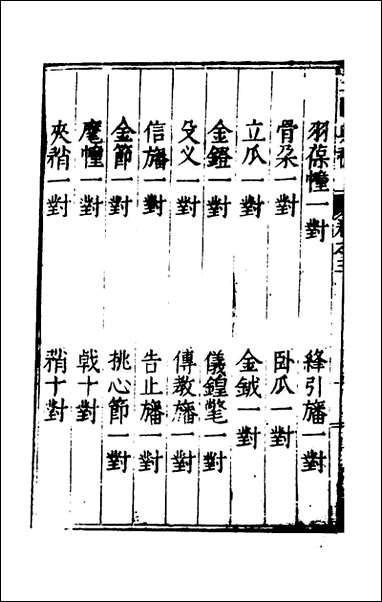 羽葆幢一對　絳引旛一對
骨朶一對　卧瓜一對
立瓜一對　金鉞一對
金鐙一對　儀鍠氅一對
殳义一對　傳教旛一對
信旛一對　告止旛一對
金節一對　挑心節一對
麾幢一對　戟十對
夾矟一對　矟十對